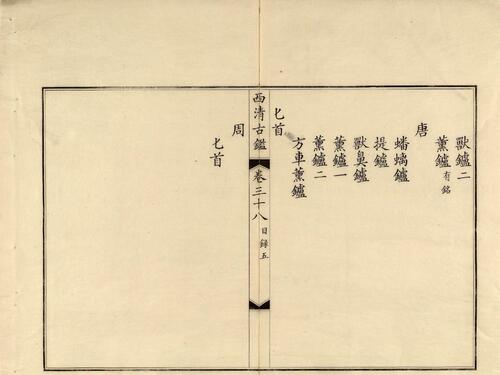 獸鑪二
薰鑪有銘
唐
蟠螭鑪
提鑪
獸臭鑪
薰鑪一
薰鑪二
方車薰鑪
匕首
西清古鑑 卷三十八 目録五
周
匕首